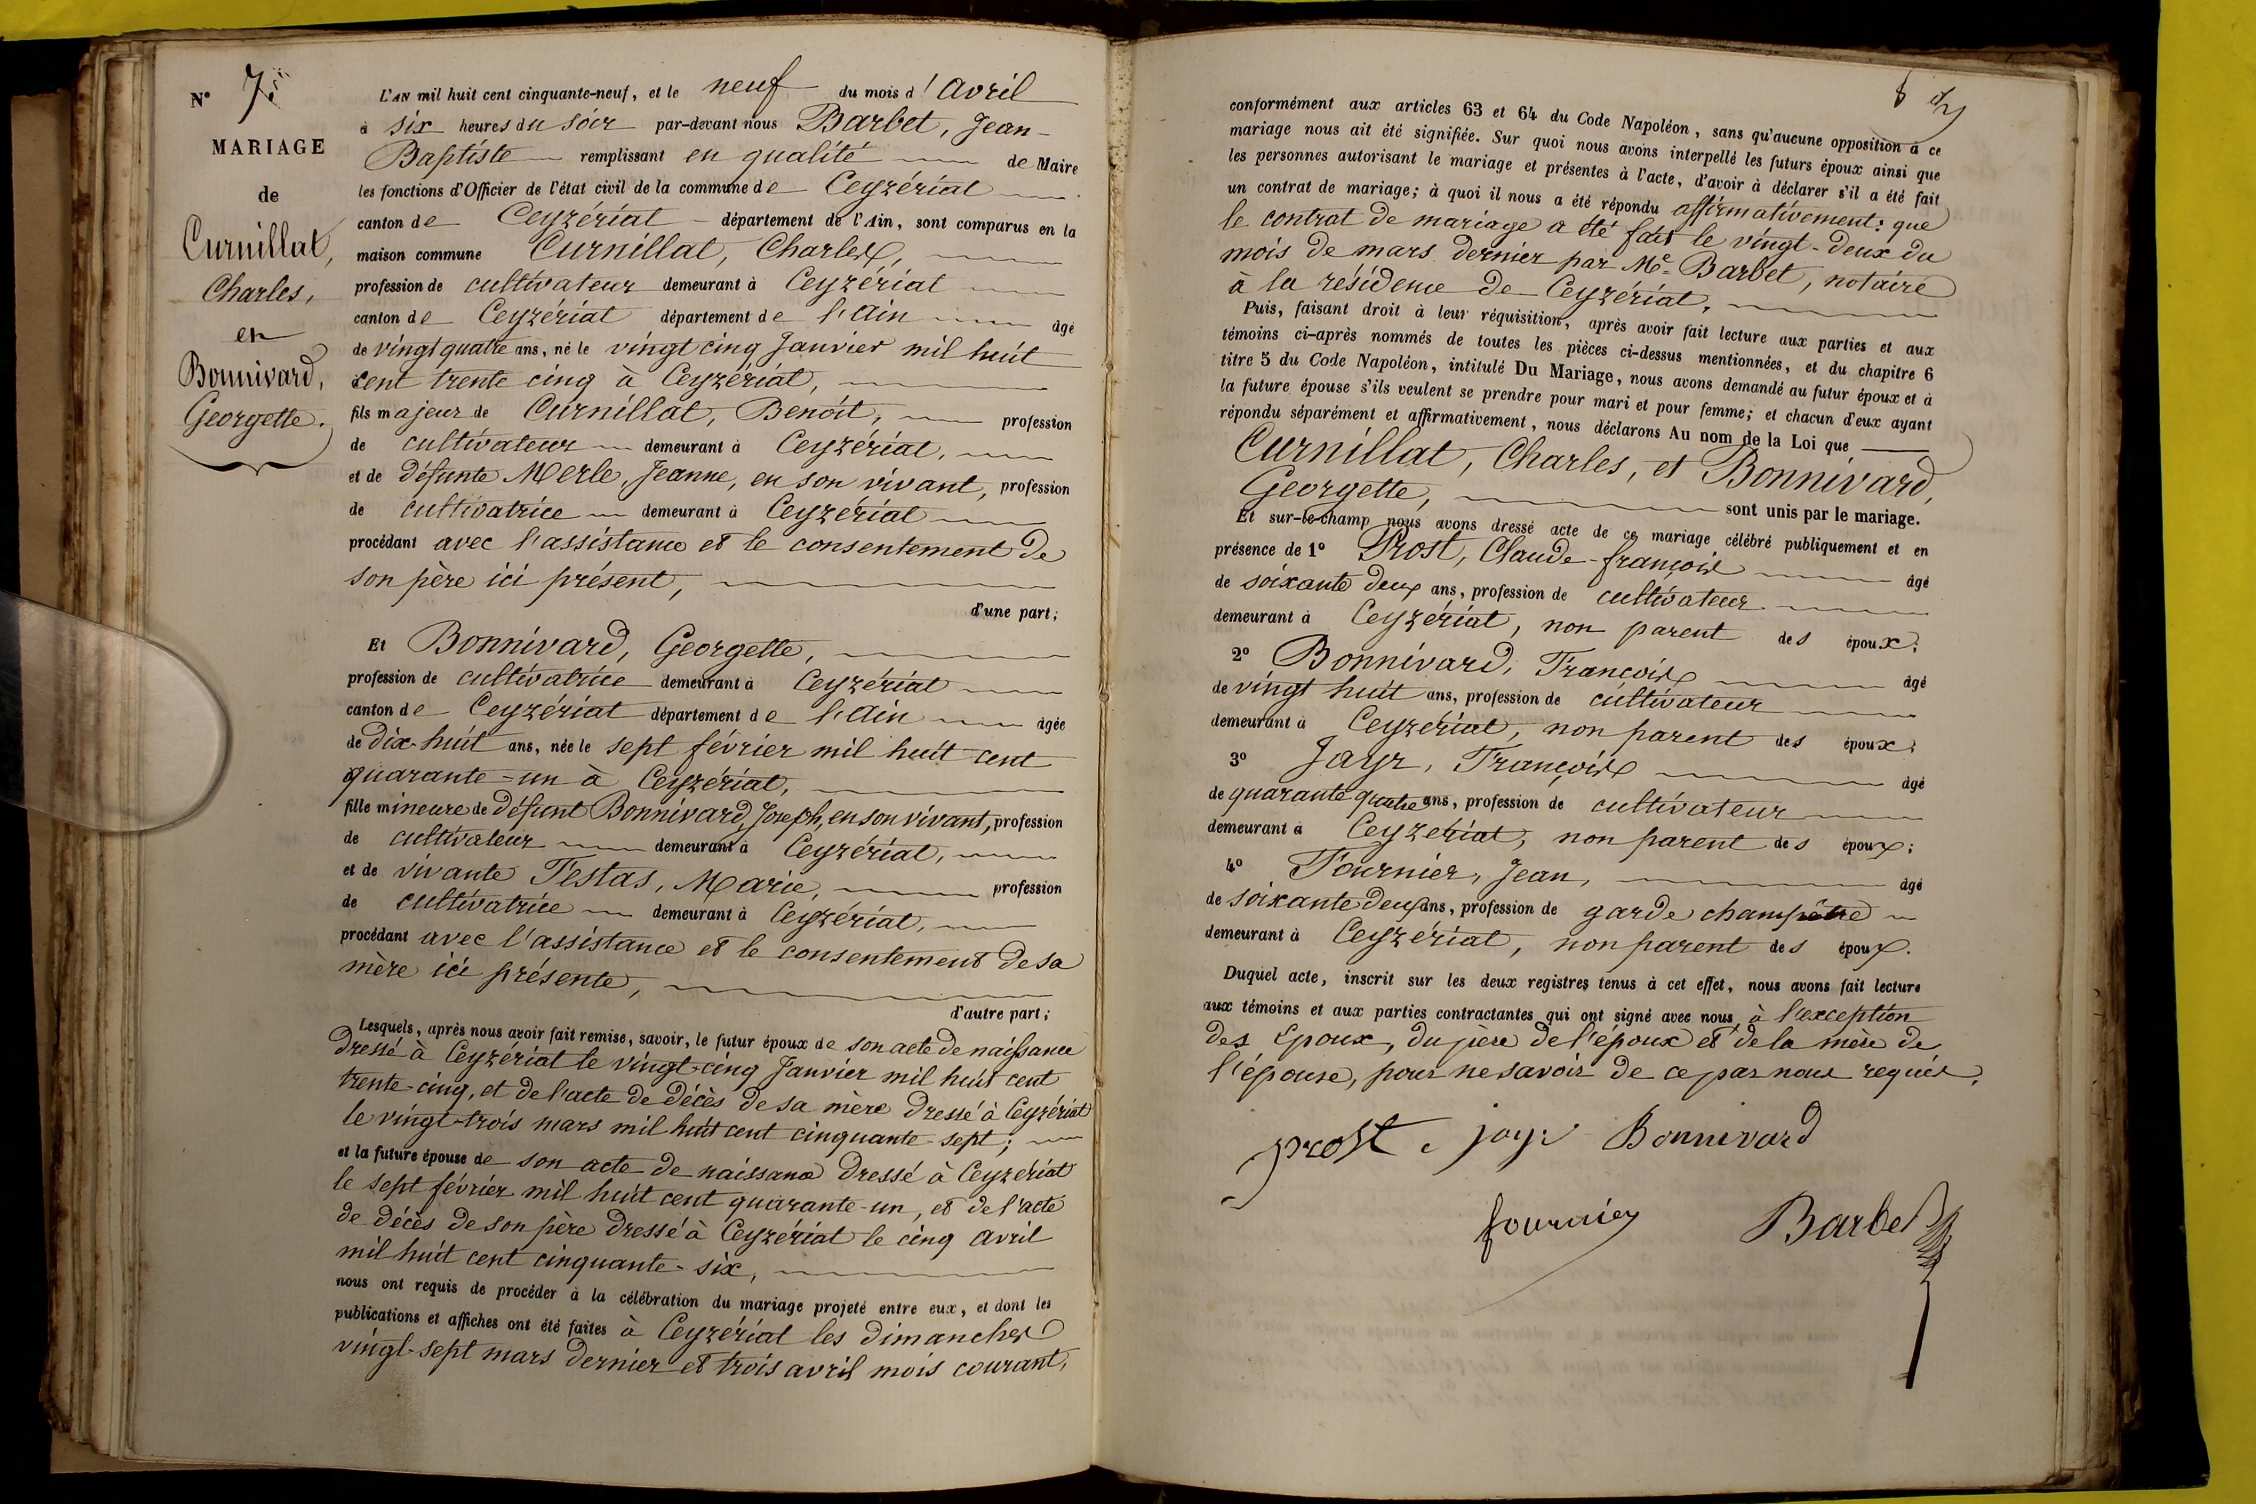 N° 7.
MARIAGE
de
Curnillat,
Charles,
en
Bonnivard,
Georgette.
L'AN mil huit cent cinquante-neuf, et le neuf du mois d'avril
à six heures du soir par-devant nous Barbet, Jean-
Baptiste remplissant en qualité de Maire
les fonctions d'Officier de l'état civil de la commune de Ceyzériat
canton de Ceyzériat département de l'Ain, sont comparus en la
maison commune Curnillat, Charles,
profession de cultivateur demeurant à Ceyzériat
canton de Ceyzériat département de l'Ain âgé
de vingt quatre ans, né le vingt cinq Janvier mil huit
cent trente cinq à Ceyzériat,
fils majeur de Curnillat, Benoît, profession
de cultivateur demeurant à Ceyzériat,
et de défunte Merle, Jeanne, en son vivant, profession
de cultivatrice demeurant à Ceyzériat
procédant avec l'assistance et le consentement de
son père ici présent,
d'une part;
Et Bonnivard, Georgette,
profession de cultivatrice demeurant à Ceyzériat
canton de Ceyzériat département de l'Ain âgée
de dix-huit ans, née le sept février mil huit cent
quarante-un à Ceyzériat,
fille mineure de défunt Bonnivard, Joseph, en son vivant, profession
de cultivateur demeurant à Ceyzériat,
et de vivante Testas, Marie, profession
de cultivatrice demeurant à Ceyzériat,
procédant avec l'assistance et le consentement de sa
mère ici présente,
d'autre part;
Lesquels, après nous avoir fait remise, savoir, le futur époux de son acte de naissance
dressé à Ceyzériat le vingt-cinq Janvier mil huit cent
trente-cinq, et de l'acte de décès de sa mère dressé à Ceyzériat
le vingt-trois mars mil huit cent cinquante-sept;
et la future épouse de son acte de naissance dressé à Ceyzériat
le sept février mil huit cent quarante-un, et de l'acte
de décès de son père dressé à Ceyzériat le cinq avril
mil huit cent cinquante-six,
nous ont requis de procéder à la célébration du mariage projeté entre eux, et dont les
publications et affiches ont été faites à Ceyzériat les dimanches
vingt-sept mars dernier et trois avril mois courant,
conformément aux articles 63 et 64 du Code Napoléon, sans qu'aucune opposition à ce
mariage nous ait été signifiée. Sur quoi nous avons interpellé les futurs époux ainsi que
les personnes autorisant le mariage et présentes à l'acte, d'avoir à déclarer s'il a été fait
un contrat de mariage; à quoi il nous a été répondu affirmativement: que
le contrat de mariage a été fait le vingt-deux du
mois de mars dernier par Me Barbet, notaire
à la résidence de Ceyzériat,
Puis, faisant droit à leur réquisition, après avoir fait lecture aux parties et aux
témoins ci-après nommés de toutes les pièces ci-dessus mentionnées, et du chapitre 6
titre 5 du Code Napoléon, intitulé Du Mariage, nous avons demandé au futur époux et à
la future épouse s'ils veulent se prendre pour mari et pour femme; et chacun d'eux ayant
répondu séparément et affirmativement, nous déclarons Au nom de la Loi que
Curnillat, Charles, et Bonnivard,
Georgette, sont unis par le mariage.
Et sur-le-champ nous avons dressé acte de ce mariage célébré publiquement et en
présence de 1° Prost, Claude-françois âgé
de soixante deux ans, profession de cultivateur
demeurant à Ceyzériat, non parent des époux;
2° Bonnivard, François âgé
de vingt huit ans, profession de cultivateur
demeurant à Ceyzériat, non parent des époux;
3° Jayr, François âgé
de quarante quatre ans, profession de cultivateur
demeurant à Ceyzériat, non parent des époux;
4° Fournier, Jean, âgé
de soixante deux ans, profession de garde champêtre
demeurant à Ceyzériat, non parent des époux.
Duquel acte, inscrit sur les deux registres tenus à cet effet, nous avons fait lecture
aux témoins et aux parties contractantes qui ont signé avec nous, à l'exception
des Epoux, du père de l'époux et de la mère de
l'épouse, pour ne savoir de ce par nous requis.
prost jayr Bonnivard
fournier Barbet